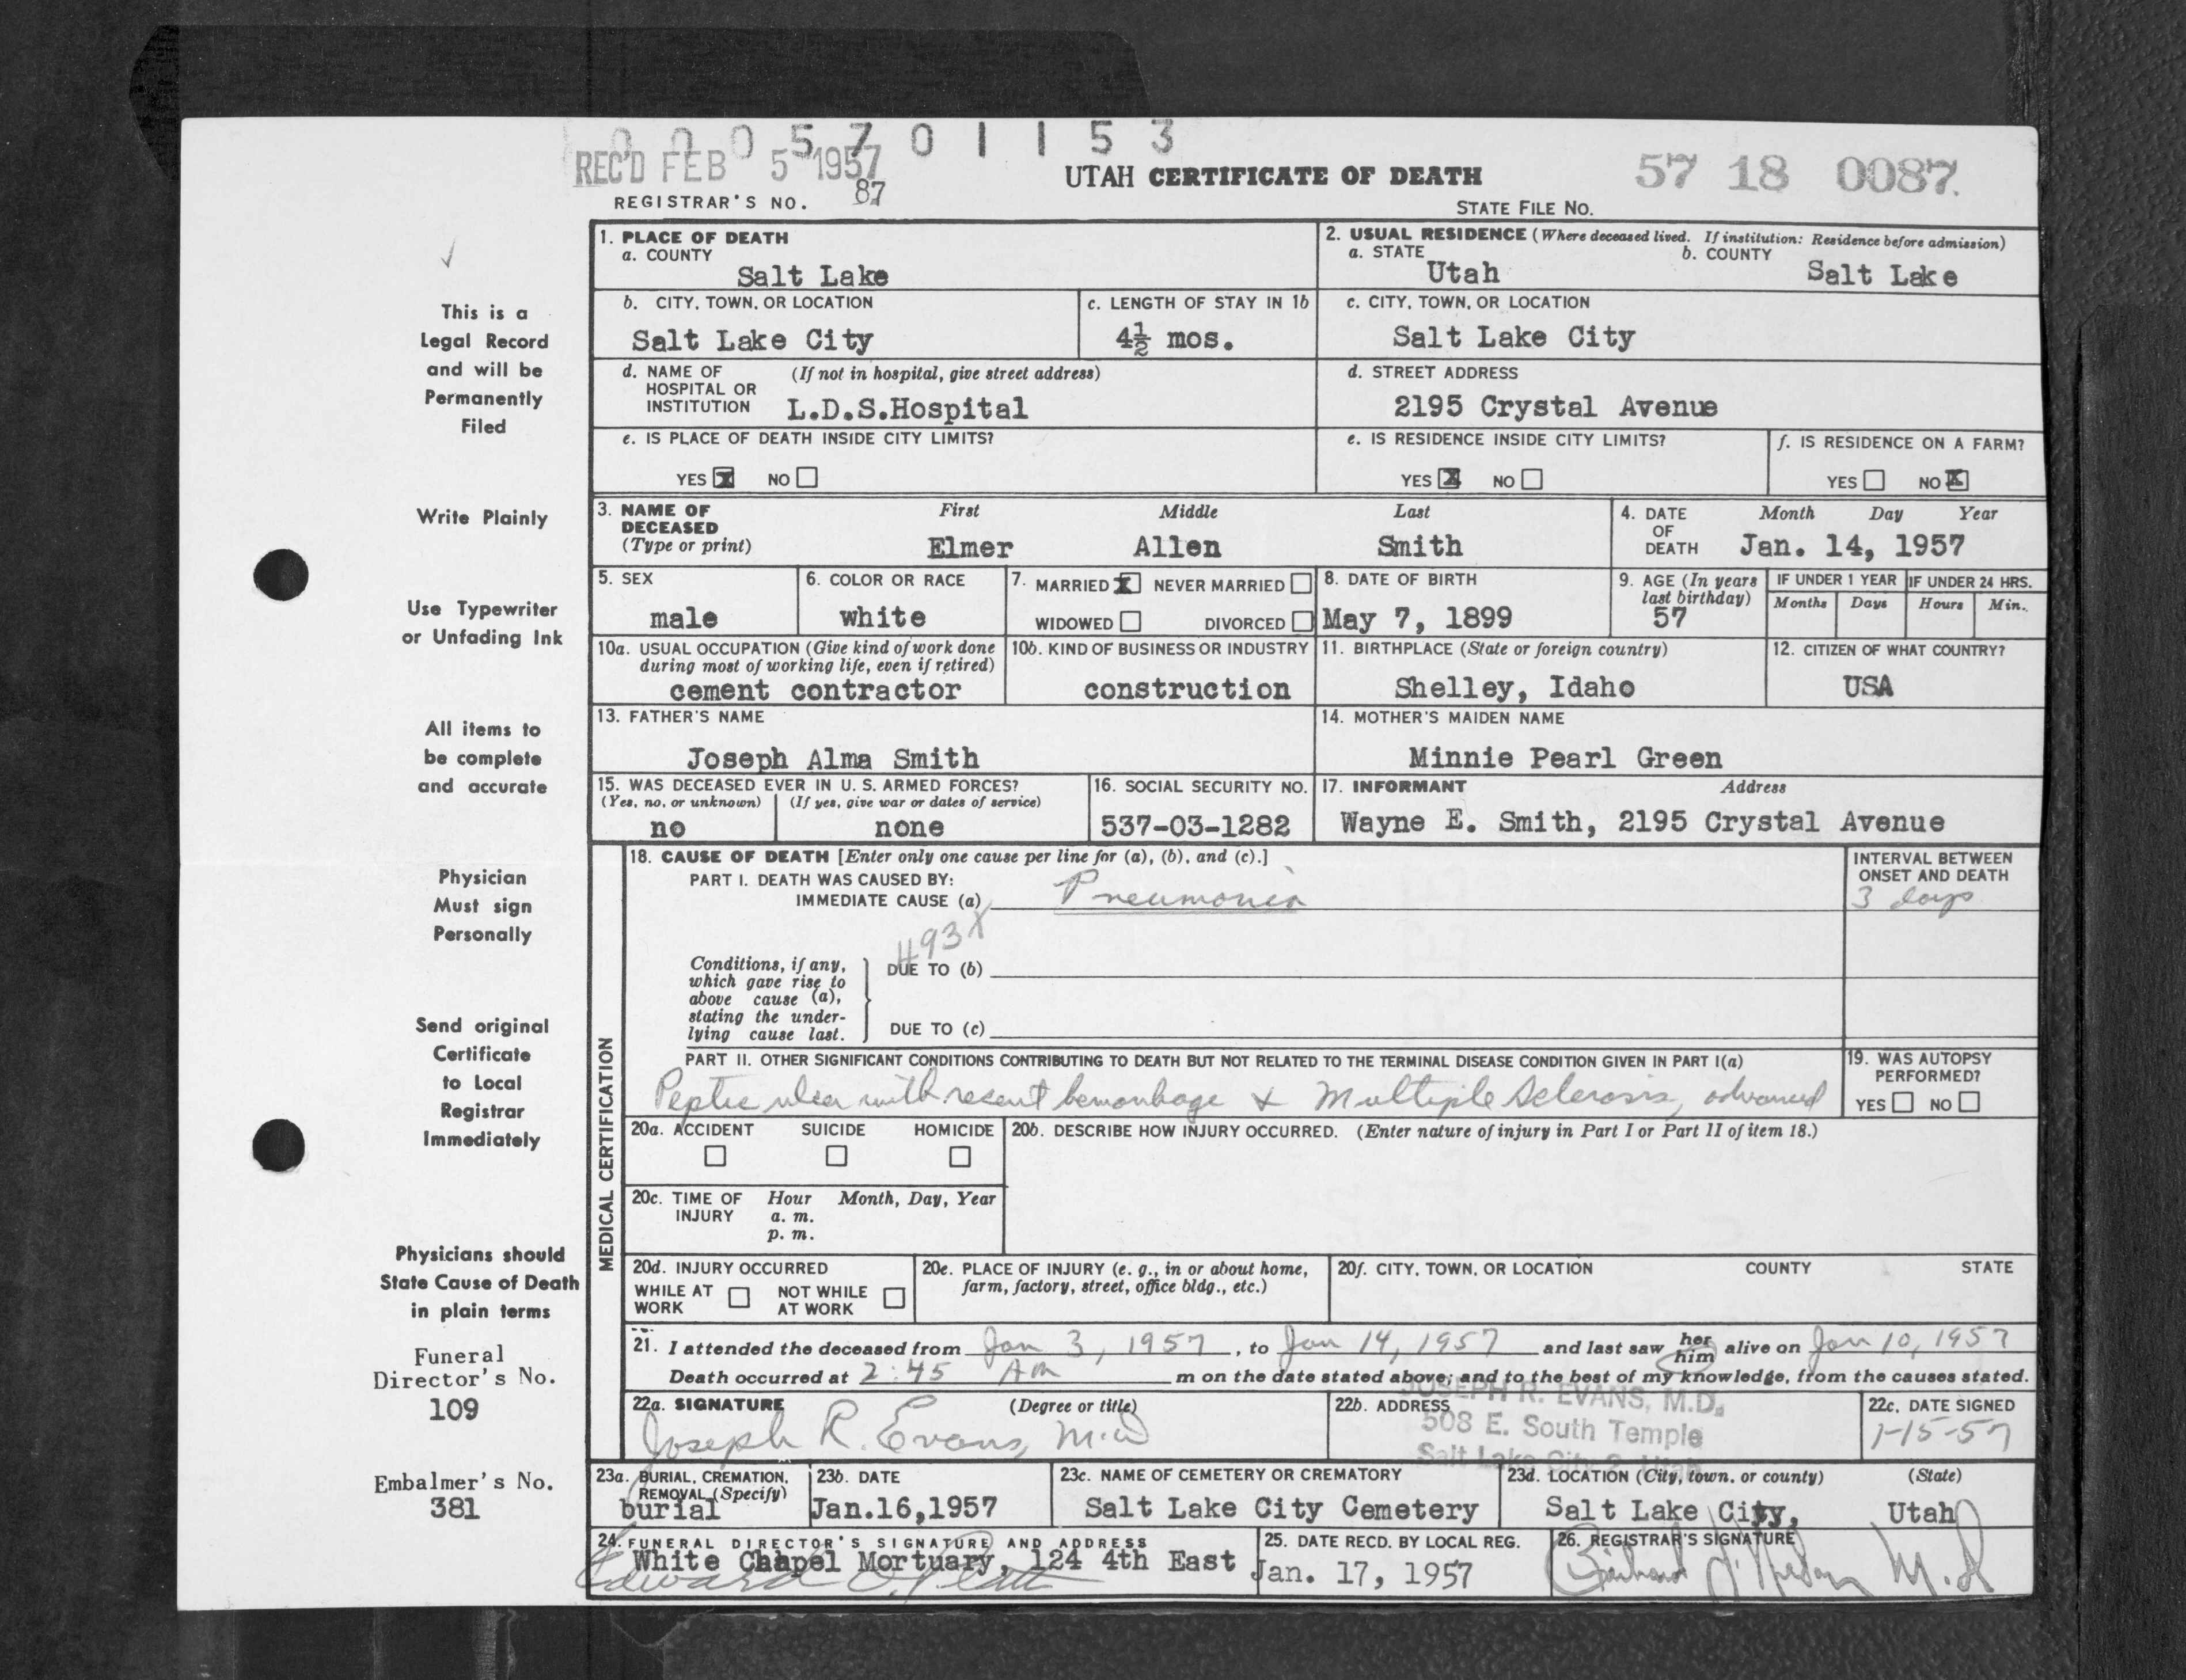 0 0 0 5 7 0 1 1 5 3
REC'D FEB 5 1957
UTAH CERTIFICATE OF DEATH
57 18 0087
REGISTRAR'S NO. 87
STATE FILE NO.
This is a
Legal Record
and will be
Permanently
Filed
Write Plainly
Use Typewriter
or Unfading Ink
All items to
be complete
and accurate
Physician
Must sign
Personally
Send original
Certificate
to Local
Registrar
Immediately
Physicians should
State Cause of Death
in plain terms
Funeral
Director's No.
109
Embalmer's No.
381
1. PLACE OF DEATH
a. COUNTY
Salt Lake
2. USUAL RESIDENCE (Where deceased lived. If institution: Residence before admission)
a. STATE Utah b. COUNTY Salt Lake
b. CITY, TOWN, OR LOCATION
Salt Lake City
c. LENGTH OF STAY IN 1b
4½ mos.
c. CITY, TOWN, OR LOCATION
Salt Lake City
d. NAME OF (If not in hospital, give street address)
HOSPITAL OR
INSTITUTION L.D.S.Hospital
d. STREET ADDRESS
2195 Crystal Avenue
e. IS PLACE OF DEATH INSIDE CITY LIMITS?
YES X NO
e. IS RESIDENCE INSIDE CITY LIMITS?
YES X NO
f. IS RESIDENCE ON A FARM?
YES NO X
3. NAME OF DECEASED (Type or print)
First Middle Last
Elmer Allen Smith
4. DATE OF DEATH Month Day Year
Jan. 14, 1957
5. SEX
male
6. COLOR OR RACE
white
7. MARRIED X NEVER MARRIED
WIDOWED DIVORCED
8. DATE OF BIRTH
May 7, 1899
9. AGE (In years last birthday)
57
IF UNDER 1 YEAR IF UNDER 24 HRS.
Months Days Hours Min.
10a. USUAL OCCUPATION (Give kind of work done
during most of working life, even if retired)
cement contractor
10b. KIND OF BUSINESS OR INDUSTRY
construction
11. BIRTHPLACE (State or foreign country)
Shelley, Idaho
12. CITIZEN OF WHAT COUNTRY?
USA
13. FATHER'S NAME
Joseph Alma Smith
14. MOTHER'S MAIDEN NAME
Minnie Pearl Green
15. WAS DECEASED EVER IN U. S. ARMED FORCES?
(Yes, no, or unknown) (If yes, give war or dates of service)
no none
16. SOCIAL SECURITY NO.
537-03-1282
17. INFORMANT Address
Wayne E. Smith, 2195 Crystal Avenue
MEDICAL CERTIFICATION
18. CAUSE OF DEATH [Enter only one cause per line for (a), (b), and (c).]
PART I. DEATH WAS CAUSED BY:
IMMEDIATE CAUSE (a) Pneumonia
INTERVAL BETWEEN
ONSET AND DEATH
3 days
493X
Conditions, if any,
which gave rise to
above cause (a),
stating the under-
lying cause last.
DUE TO (b)
DUE TO (c)
PART II. OTHER SIGNIFICANT CONDITIONS CONTRIBUTING TO DEATH BUT NOT RELATED TO THE TERMINAL DISEASE CONDITION GIVEN IN PART I(a)
Peptic ulcer with recent hemorrhage & Multiple Sclerosis, advanced
19. WAS AUTOPSY
PERFORMED?
YES NO
20a. ACCIDENT SUICIDE HOMICIDE
20b. DESCRIBE HOW INJURY OCCURRED. (Enter nature of injury in Part I or Part II of item 18.)
20c. TIME OF INJURY Hour Month, Day, Year
a. m.
p. m.
20d. INJURY OCCURRED
WHILE AT WORK NOT WHILE AT WORK
20e. PLACE OF INJURY (e. g., in or about home,
farm, factory, street, office bldg., etc.)
20f. CITY, TOWN, OR LOCATION COUNTY STATE
21. I attended the deceased from Jan 3, 1957, to Jan 14, 1957 and last saw her him alive on Jan 10, 1957
Death occurred at 2:45 AM m on the date stated above; and to the best of my knowledge, from the causes stated.
22a. SIGNATURE (Degree or title)
Joseph R. Evans, M.D
22b. ADDRESS
JOSEPH R. EVANS, M.D.
508 E. South Temple
Salt Lake City 2, Utah
22c. DATE SIGNED
1-15-57
23a. BURIAL, CREMATION,
REMOVAL (Specify)
burial
23b. DATE
Jan.16,1957
23c. NAME OF CEMETERY OR CREMATORY
Salt Lake City Cemetery
23d. LOCATION (City, town, or county) (State)
Salt Lake City, Utah
24. FUNERAL DIRECTOR'S SIGNATURE AND ADDRESS
White Chapel Mortuary, 124 4th East
Edward
25. DATE RECD. BY LOCAL REG.
Jan. 17, 1957
26. REGISTRAR'S SIGNATURE
M.D